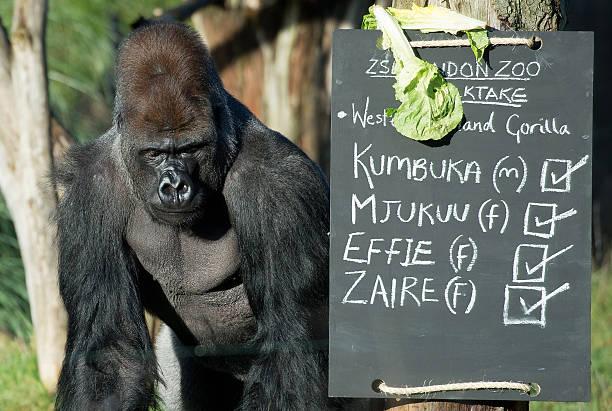 ZS NDON ZOO
KTAKE
• West and Gorilla
KUMBUKA (m)
MJUKUU (f)
EFFIE (f)
ZAIRE (f)